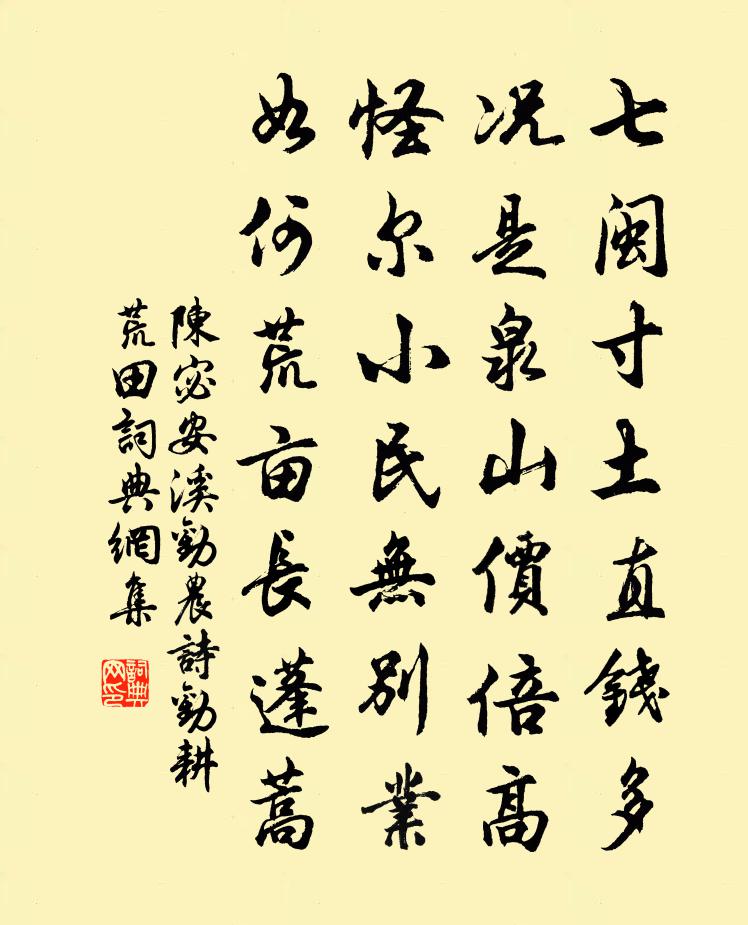 七閩寸土直錢多
况是泉山價倍高
怪尔小民無別業
如何荒亩長蓬蒿
陳宓安溪勸農詩勸耕
荒田詞典網集
詞典
网印